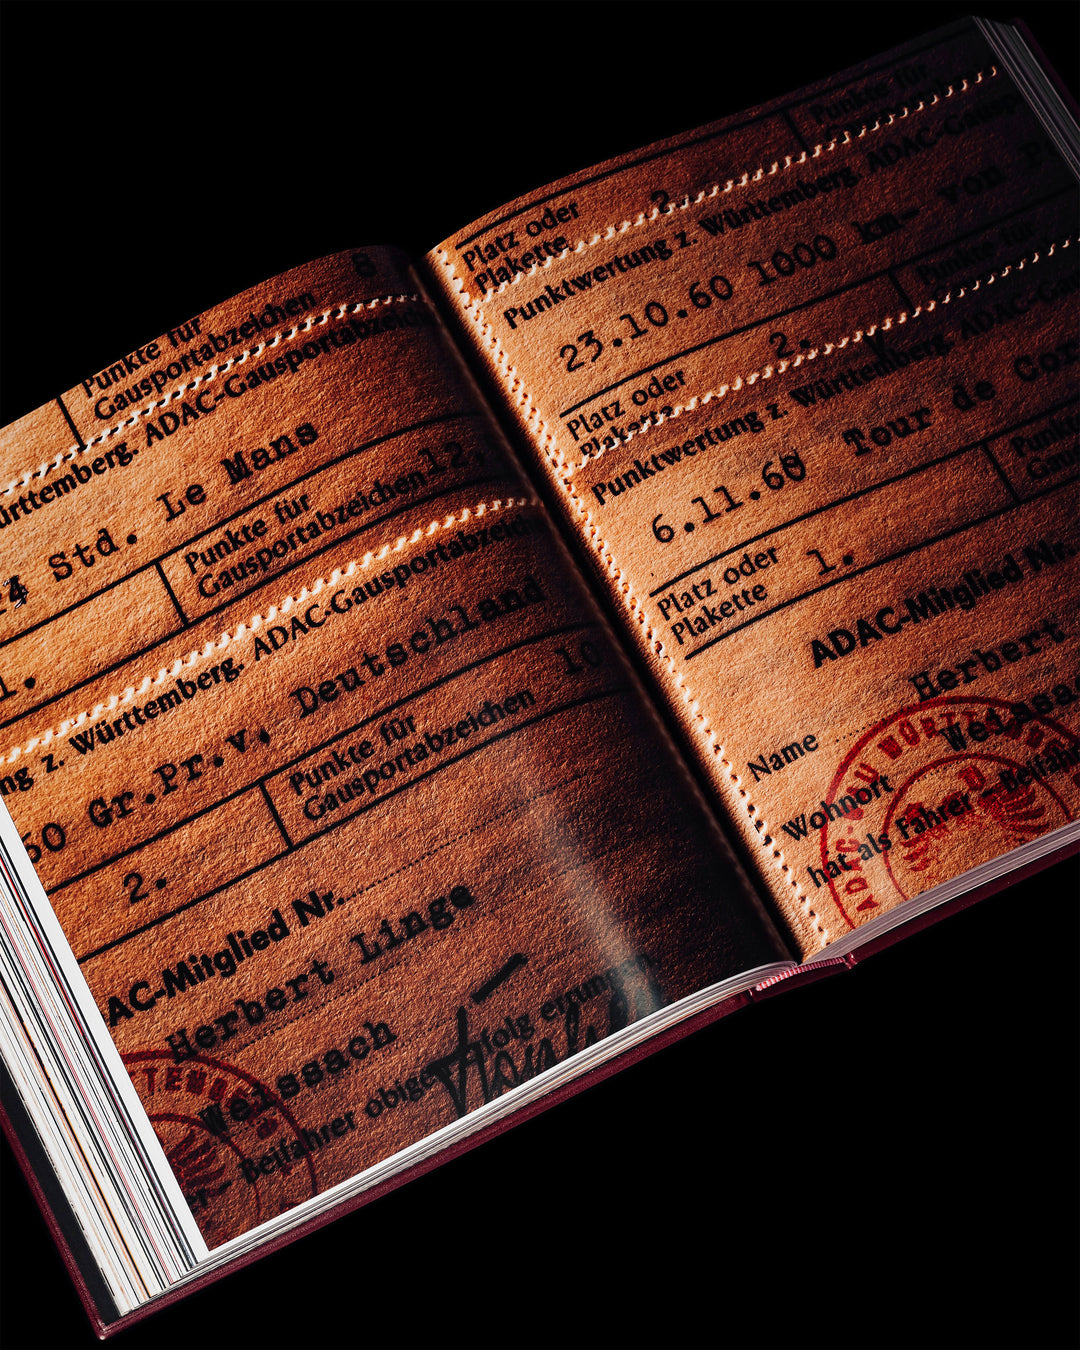 8
Punkte für
Gausportabzeichen
Württemberg. ADAC-Gausportabzeichen
24 Std. Le Mans
Punkte für
Gausportabzeichen 12.
1.
z. Württemberg. ADAC-Gausportabzeichen
60 Gr.Pr.v. Deutschland
Punkte für
Gausportabzeichen 10
2.
AC-Mitglied Nr.
Herbert Linge
Weissach
Beifahrer obige
folg errung
Platz oder 2.
Plakette
Punkte für
Punktwertung z. Württemberg. ADAC-Gausp
23.10.60 1000 km- von P
Platz oder 2.
Plakette
Punkte für
Punktwertung z. Württemberg. ADAC-Gau
6.11.60 Tour de Cor
Platz oder 1.
Plakette
Punkt
Gau
ADAC-Mitglied Nr.
Name Herbert
Wohnort Weissac
hat als Fahrer – Beifah
ADAC-GAU WÜRTTEM